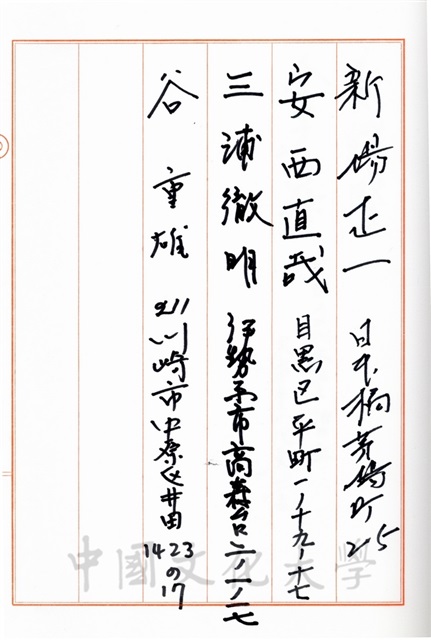 新場正一 日本橋茅場町2-5
安西直哉 目黒区平町一ノ十九ノ十七
三浦徹明 伊勢原市高森台二ノ一ノ一七
谷 重雄 211川崎市中原区井田1423の17
中國文化大學